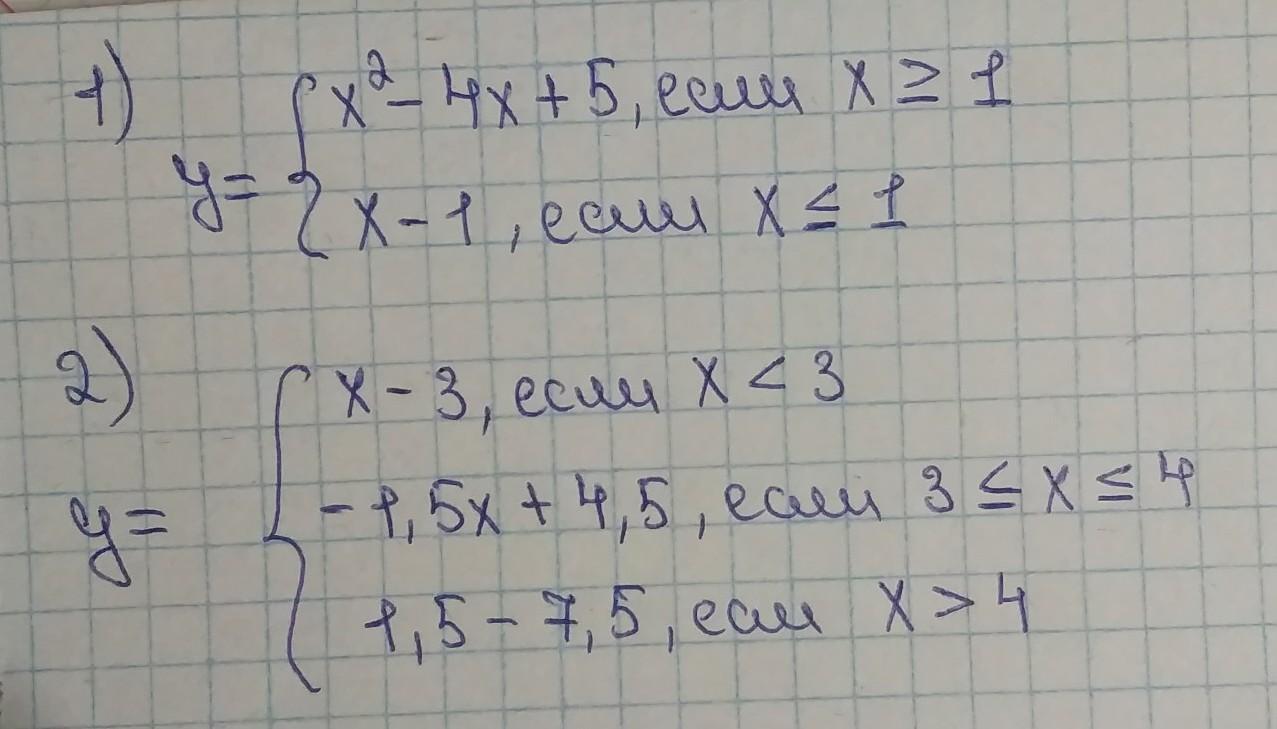 1)
y = { x² - 4x + 5, если x ≥ 1
x - 1, если x ≤ 1
2)
y = { x - 3, если x < 3
-1,5x + 4,5, если 3 ≤ x ≤ 4
1,5 - 7,5, если x > 4